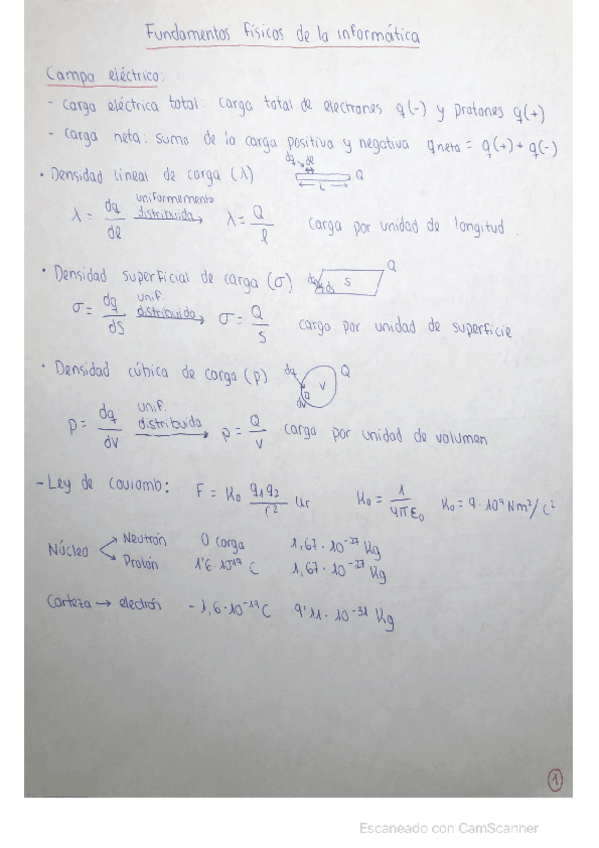 Fundamentos físicos de la informática
Campo eléctrico:
- carga eléctrica total: carga total de electrones q(-) y protones q(+)
- carga neta: suma de la carga positiva y negativa qneta = q(+) + q(-)
· Densidad lineal de carga (λ) dq dl L Q
λ = dq/dl uniformemente distribuida → λ = Q/l carga por unidad de longitud
· Densidad superficial de carga (σ) dq ds S Q
σ = dq/dS unif. distribuida → σ = Q/S carga por unidad de superficie
· Densidad cúbica de carga (ρ) dq dv V Q
ρ = dq/dv unif. distribuida → ρ = Q/v carga por unidad de volumen
- Ley de Coulomb: F = K₀ q₁q₂/r² ur K₀ = 1/4πε₀ K₀ = 9·10⁹ Nm²/C²
Núcleo
Neutrón 0 carga 1,67·10⁻²⁷ Kg
Protón 1'6·10⁻¹⁹ C 1,67·10⁻²⁷ Kg
Corteza → electrón -1,6·10⁻¹⁹ C 9'11·10⁻³¹ Kg
1
Escaneado con CamScanner